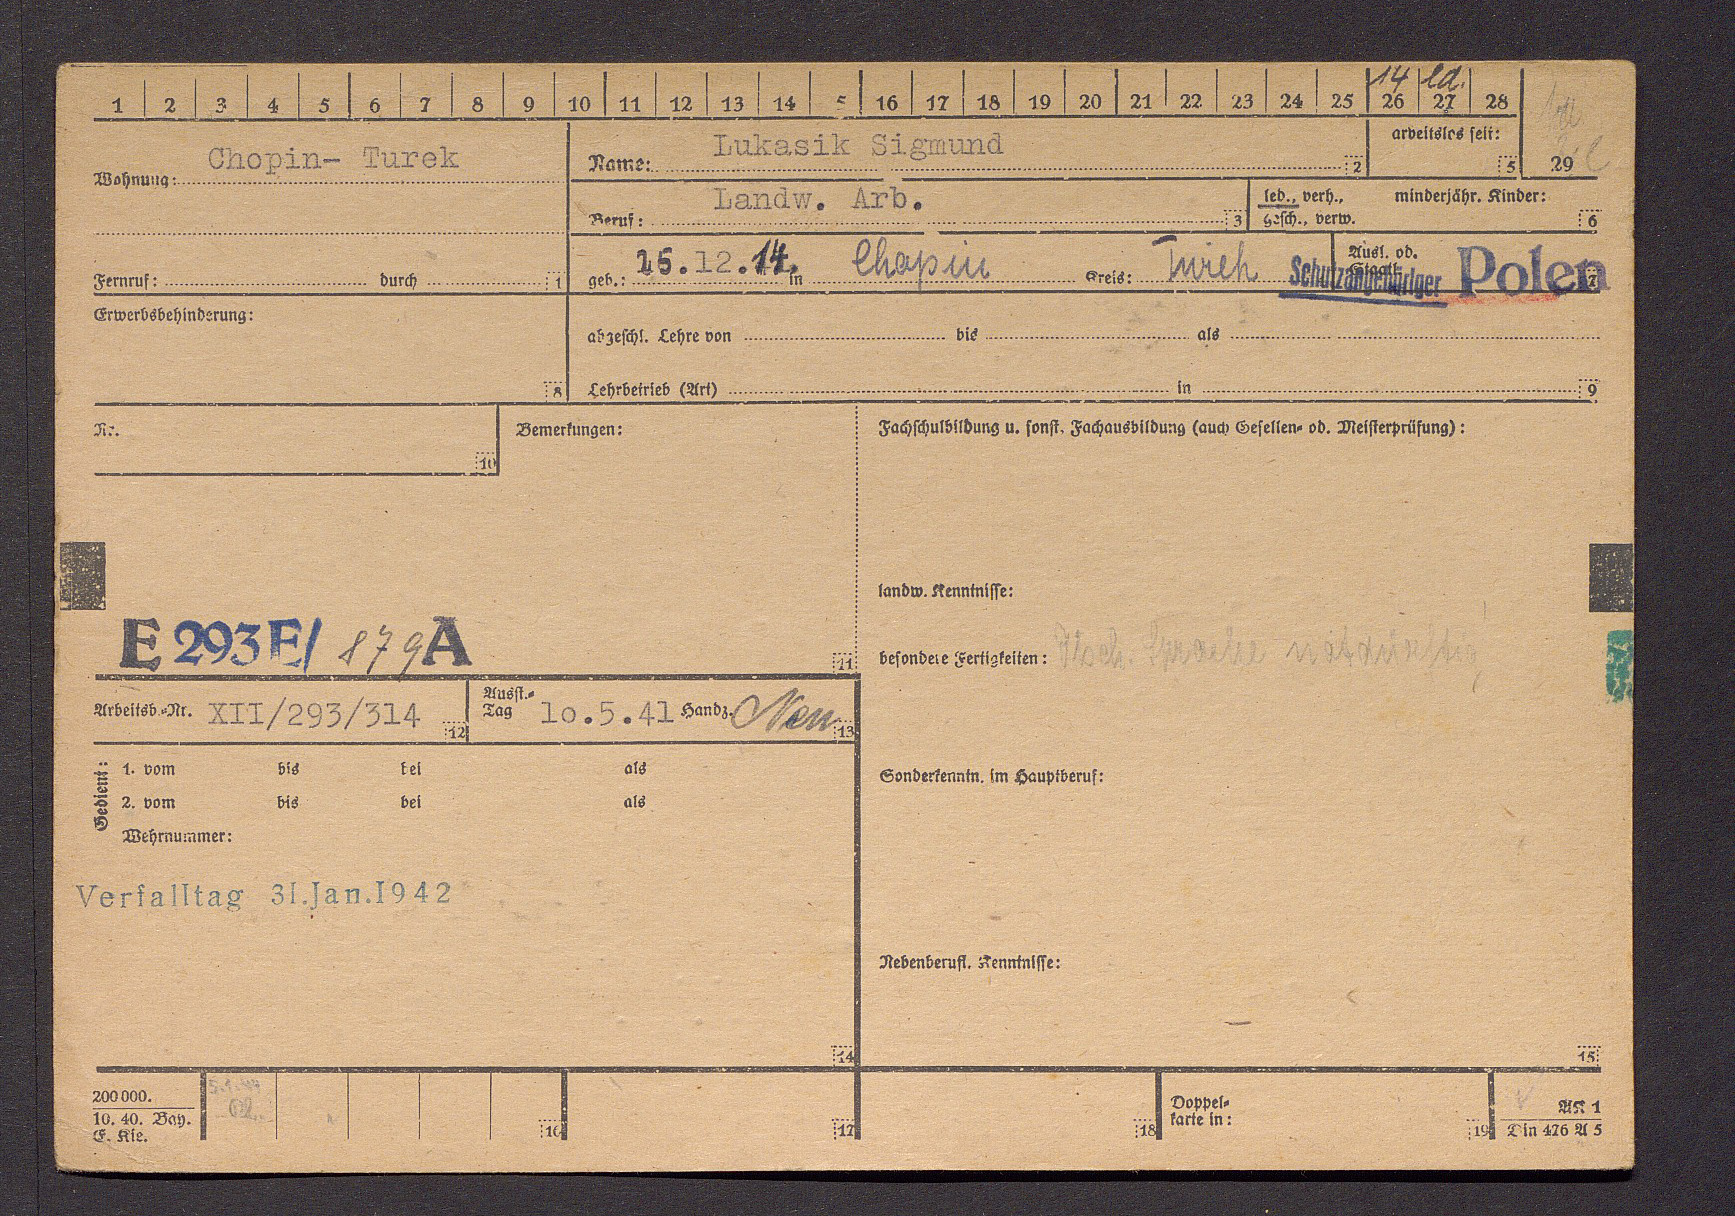 14 ld.
1 2 3 4 5 6 7 8 9 10 11 12 13 14 5 16 17 18 19 20 21 22 23 24 25 26 27 28
29
Wohnung: Chopin- Turek
Name: Lukasik Sigmund 2
arbeitslos seit: 5
Beruf: Landw. Arb. 3
led., verh., gesch., verw.
minderjähr. Kinder: 6
Fernruf: durch 1
geb.: 15.12.14. in Chopin Kreis: Turek
Ausl. od. Staatl. 7
Schutzangehöriger Polen
Erwerbsbehinderung: 8
abgeschl. Lehre von bis als
Lehrbetrieb (Art) in 9
Nr. 10
Bemerkungen:
Fachschulbildung u. sonst. Fachausbildung (auch Gesellen- od. Meisterprüfung):
landw. Kenntnisse:
E 293E/ 879 A 11
besondere Fertigkeiten: Dtsch. Sprache notdürftig
Arbeitsb.-Nr. XII/293/314 12
Ausst.-Tag 10.5.41 Handz. 13
Gedient:
1. vom bis bei als
2. vom bis bei als
Wehrnummer:
Sonderkenntn. im Hauptberuf:
Verfalltag 31.Jan.1942
Nebenberufl. Kenntnisse:
14
15
200000.
10. 40. Bay.
E. Kie.
16
17
18
Doppel-
karte in:
19
AK 1
Din 476 A 5